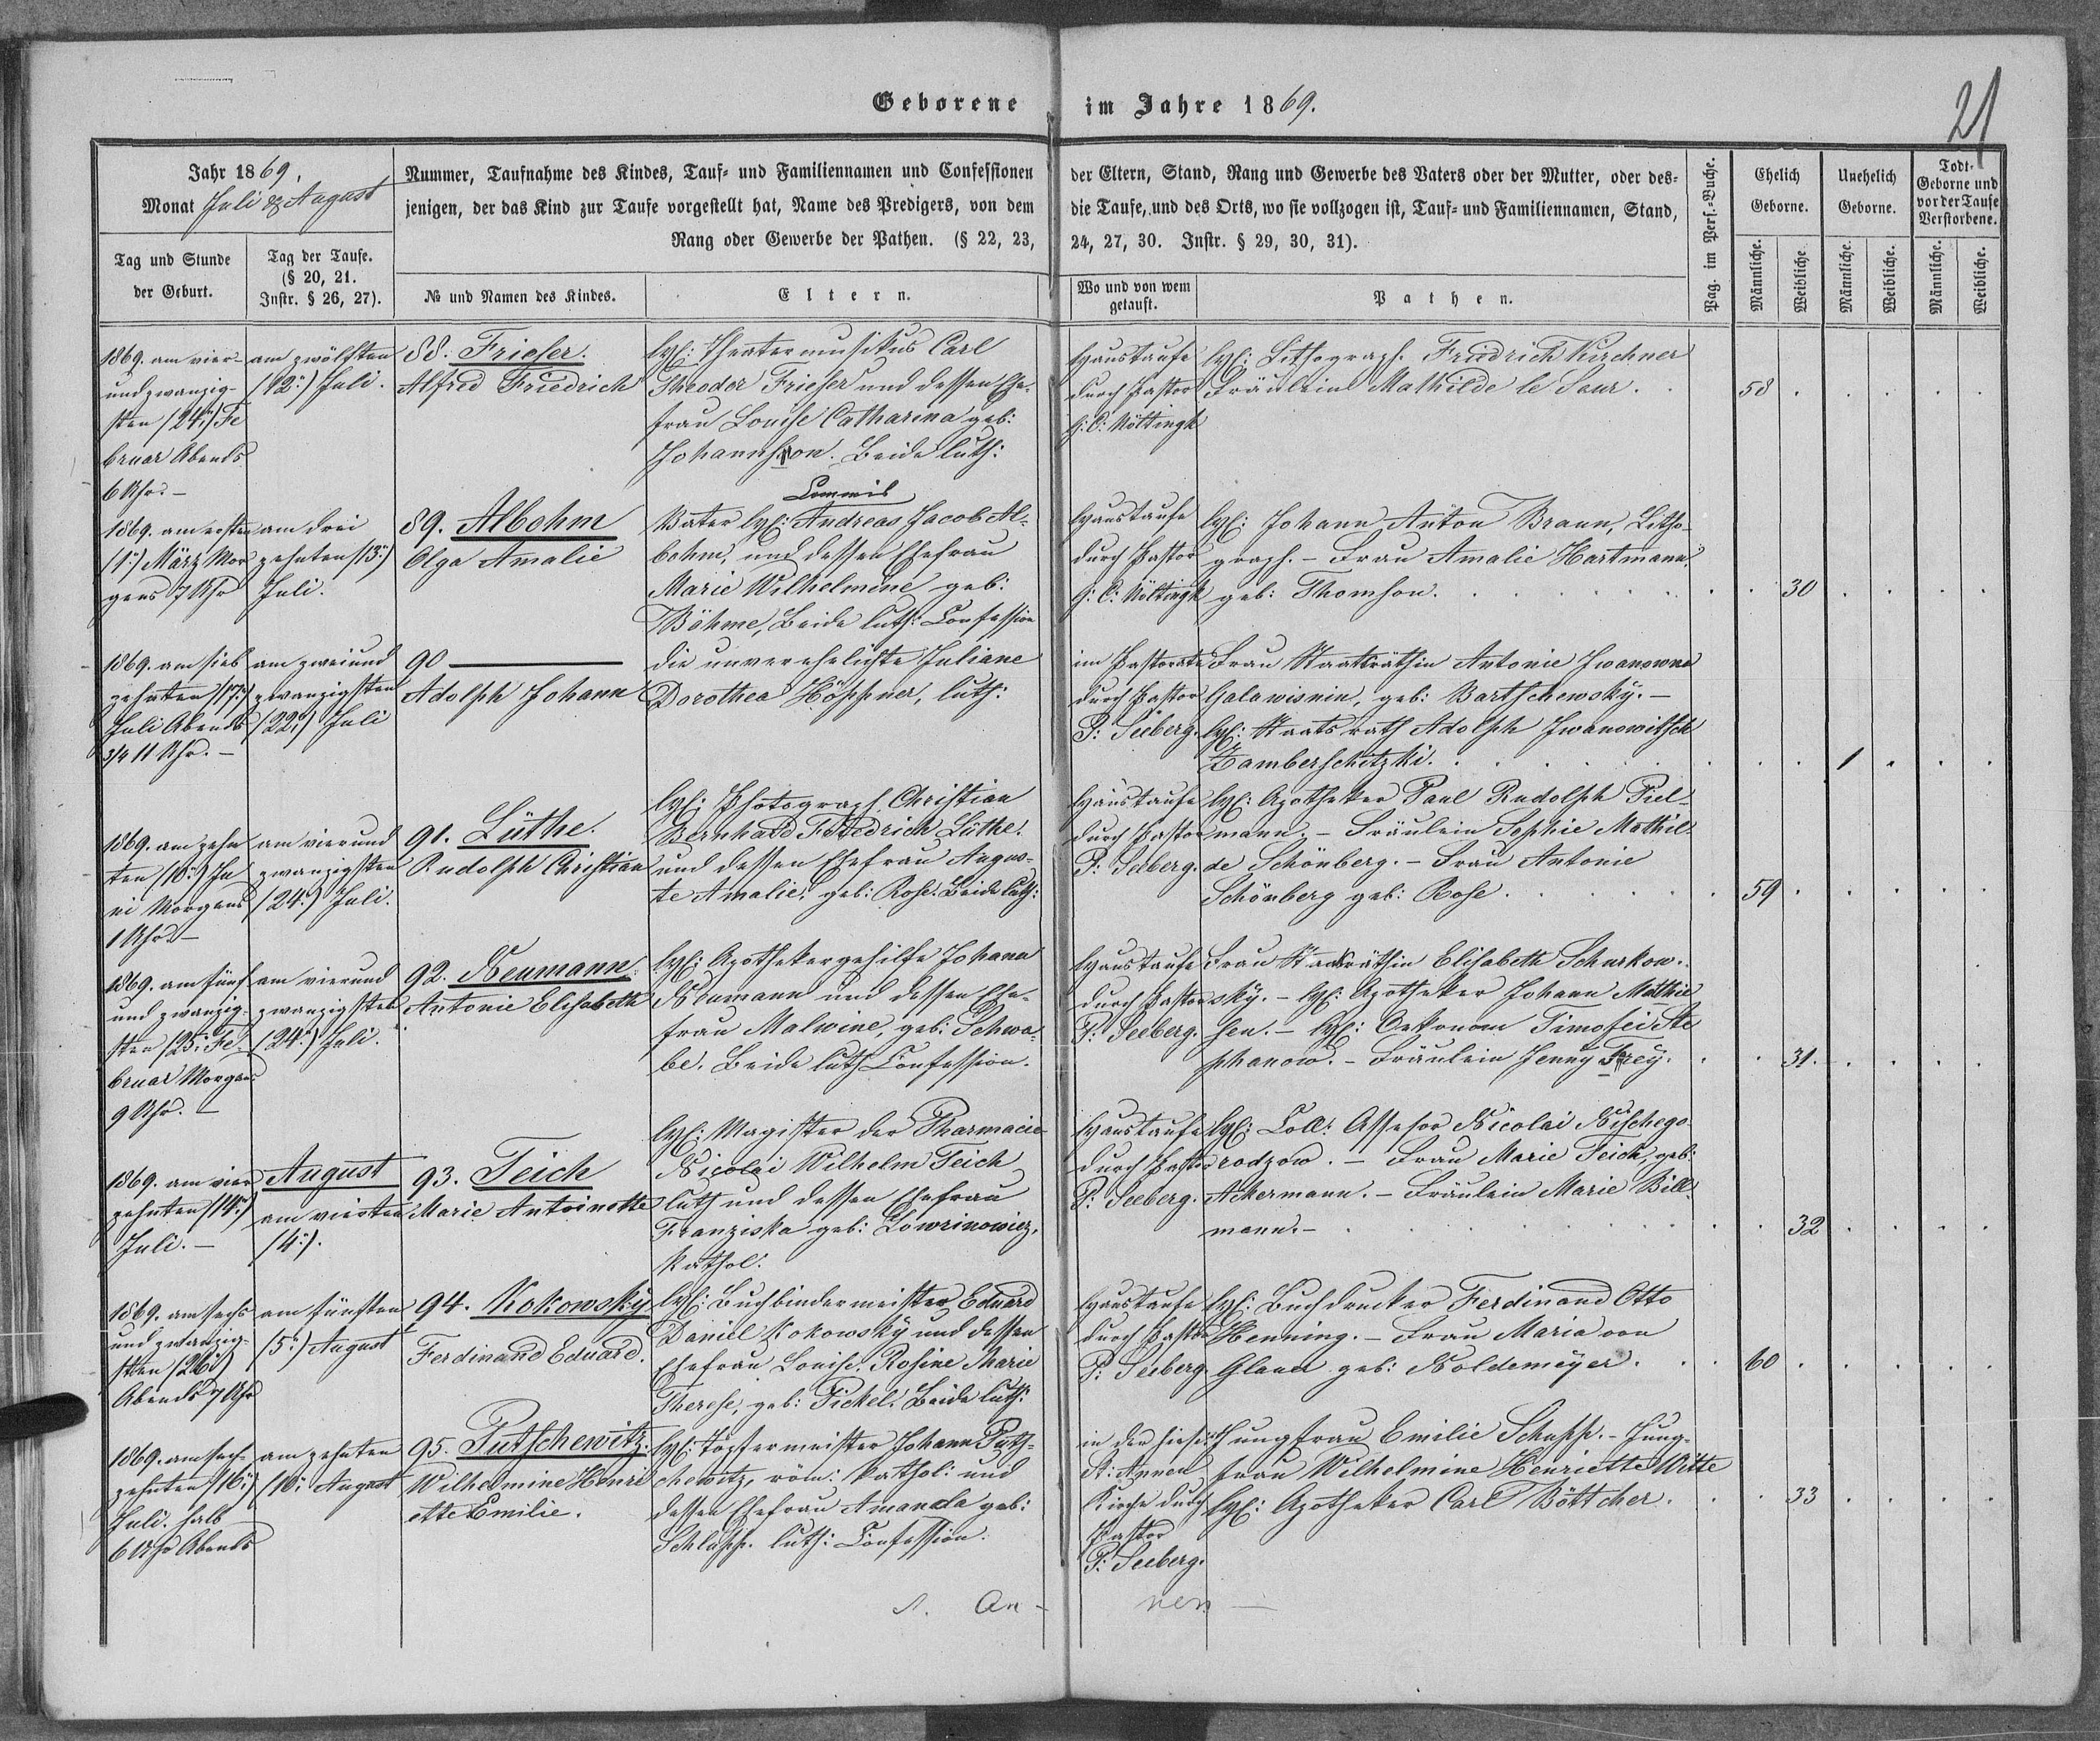 Geborene im Jahre 1869.
21
Jahr 1869.
Monat Juli & August
Nummer, Taufnahme des Kindes, Tauf- und Familiennamen und Confessionen der Eltern, Stand, Rang und Gewerbe des Vaters oder der Mutter, oder des-
jenigen, der das Kind zur Taufe vorgestellt hat, Name des Predigers, von dem die Taufe, und des Orts, wo sie vollzogen ist, Tauf- und Familiennamen, Stand,
Rang oder Gewerbe der Pathen. (§ 22, 23, 24, 27, 30. Instr. § 29, 30, 31).
Tag und Stunde
der Geburt.
Tag der Taufe.
(§ 20, 21.
Instr. § 26, 27).
№ und Namen des Kindes.
Eltern.
Wo und von wem
getauft.
Pathen.
Pag. im Pers.-Buche.
Ehelich
Geborne.
Unehelich
Geborne.
Todt-
Geborne und
vor der Taufe
Verstorbene.
Männliche.
Weibliche
Männliche.
Weibliche.
Männliche.
Weibliche.
1869. am vier-
und zwanzig-
sten (24.) Fe
bruar Abends
6 Uhr. –
am zwölften
(12.) Juli.
88. Frieser.
Alfred Friedrich
H: Theatermusikus Carl
Theodor Frieser und dessen Ehe-
frau Louise Catharina geb:
Johannson. Beide luth:
Haustaufe
durch Pastor
G: C: Nöltingk
H: Lithograph. Friedrich Kirchner
Fräulein Mathilde le Seur.
58
1869. am ersten
(1.) März Mor
gens 7 Uhr
am drei
zehnten (13.)
Juli.
89. Albohm
Olga Amalie
Commis
Vater H: Andreas Jacob Al-
bohm, und dessen Ehefrau
Marie Wilhelmine geb:
Böhme, Beide luth: Confession
Haustaufe
durch Pastor
G: C: Nöltingk
H: Johann Anton Braun, Litho-
graph. – Frau Amalie Hartmann,
geb: Thomson.
30
1869. am sieb
zehnten (17.)
Juli Abends
3/4 11 Uhr. –
am zweiund
zwanzigsten
(22.) Juli
90 ———
Adolph Johann
die unverehelichte Juliane
Dorothea Höppner, luth:
im Pastorate
durch Pastor
P: Seeberg.
Frau Staatsräthin Antonie Iwanowna
Galawisnin, geb: Bartschewsky. –
H: Staatsrath Adolph Iwanowitsch
Zamberschitzki.
1
1869. am zehn
ten (10.) Ju
ni Morgens
1 Uhr –
am vierund
zwanzigsten
(24.) Juli.
91. Lüthe.
Rudolph Christian
H: Photograph Christian
Bernhard Friedrich Lüthe.
und dessen Ehefrau Augus-
te Amalie, geb: Rose. Beide luth:
Haustaufe
durch Pastor
P: Seeberg.
H: Apotheker Paul Rudolph Piel-
mann. – Fräulein Sophie Mathil-
de Schönberg. – Frau Antonie
Schönberg geb: Rose.
59
1869. am fünf
und zwanzig-
sten (25. Fe-
bruar Morgens
9 Uhr. –
am vierund
zwanzigsten
(24.) Juli.
92. Neumann
Antonie Elisabeth
H: Apothekergehilfe Johann
Neumann und dessen Ehe-
frau Malwine, geb: Schwa-
be. Beide luth Confession.
Haustaufe
durch Pastor
P: Seeberg.
Frau Staatsräthin Elisabeth Schurkow-
sky. – H: Apotheker Johann Mathie
sen. – H: Oekonom Timofei Ste
phanow. – Fräulein Jenny Frey.
31.
1869. am vier
zehnten (14.)
Juli. –
August
am vierten
(4.).
93. Teich
Marie Antoinette
H: Magister der Pharmacie
Nicolai Wilhelm Teich
luth und dessen Ehefrau
Franziska geb: Lowrinowicz,
kathol.
Haustaufe
durch Pastor
P: Seeberg.
H: Coll: Assesor Nicolai Nischego-
rodzow. – Frau Marie Teich, geb:
Ackermann. – Fräulein Marie Bill-
mann. –
32
1869. am sechs
und zwanzig-
sten (26.)
Abends 7 Uhr
am fünften
(5.) August
94. Kokowsky
Ferdinand Eduard.
H: Buchbindermeister Eduard
Daniel Kokowsky und dessen
Ehefrau Louise Rosine Marie
Therese, geb: Pickel. Beide luth:
Haustaufe
durch Pastor
P: Seeberg
H: Buchdrucker Ferdinand Otto
Henning. – Frau Maria von
Glaen geb: Noldemeyer.
60
1869. am sech-
zehnten (16.)
Juli. halb
6 Uhr Abends
am zehnten
(10. August
95. Putschewitz.
Wilhelmine Henri
ette Emilie.
H: Töpfermeister Johann Puts-
chewitz, röm: kathol: und
dessen Ehefrau Amanda geb:
Schlupp. luth: Confession.
in der hiesig
St: Annen
Kirche durch
Pastor
P: Seeberg.
Jungfrau Emilie Schupp. – Jung-
frau Wilhelmine Henriette Witte
H: Apotheker Carl Böttcher.
33
A. An – nen –